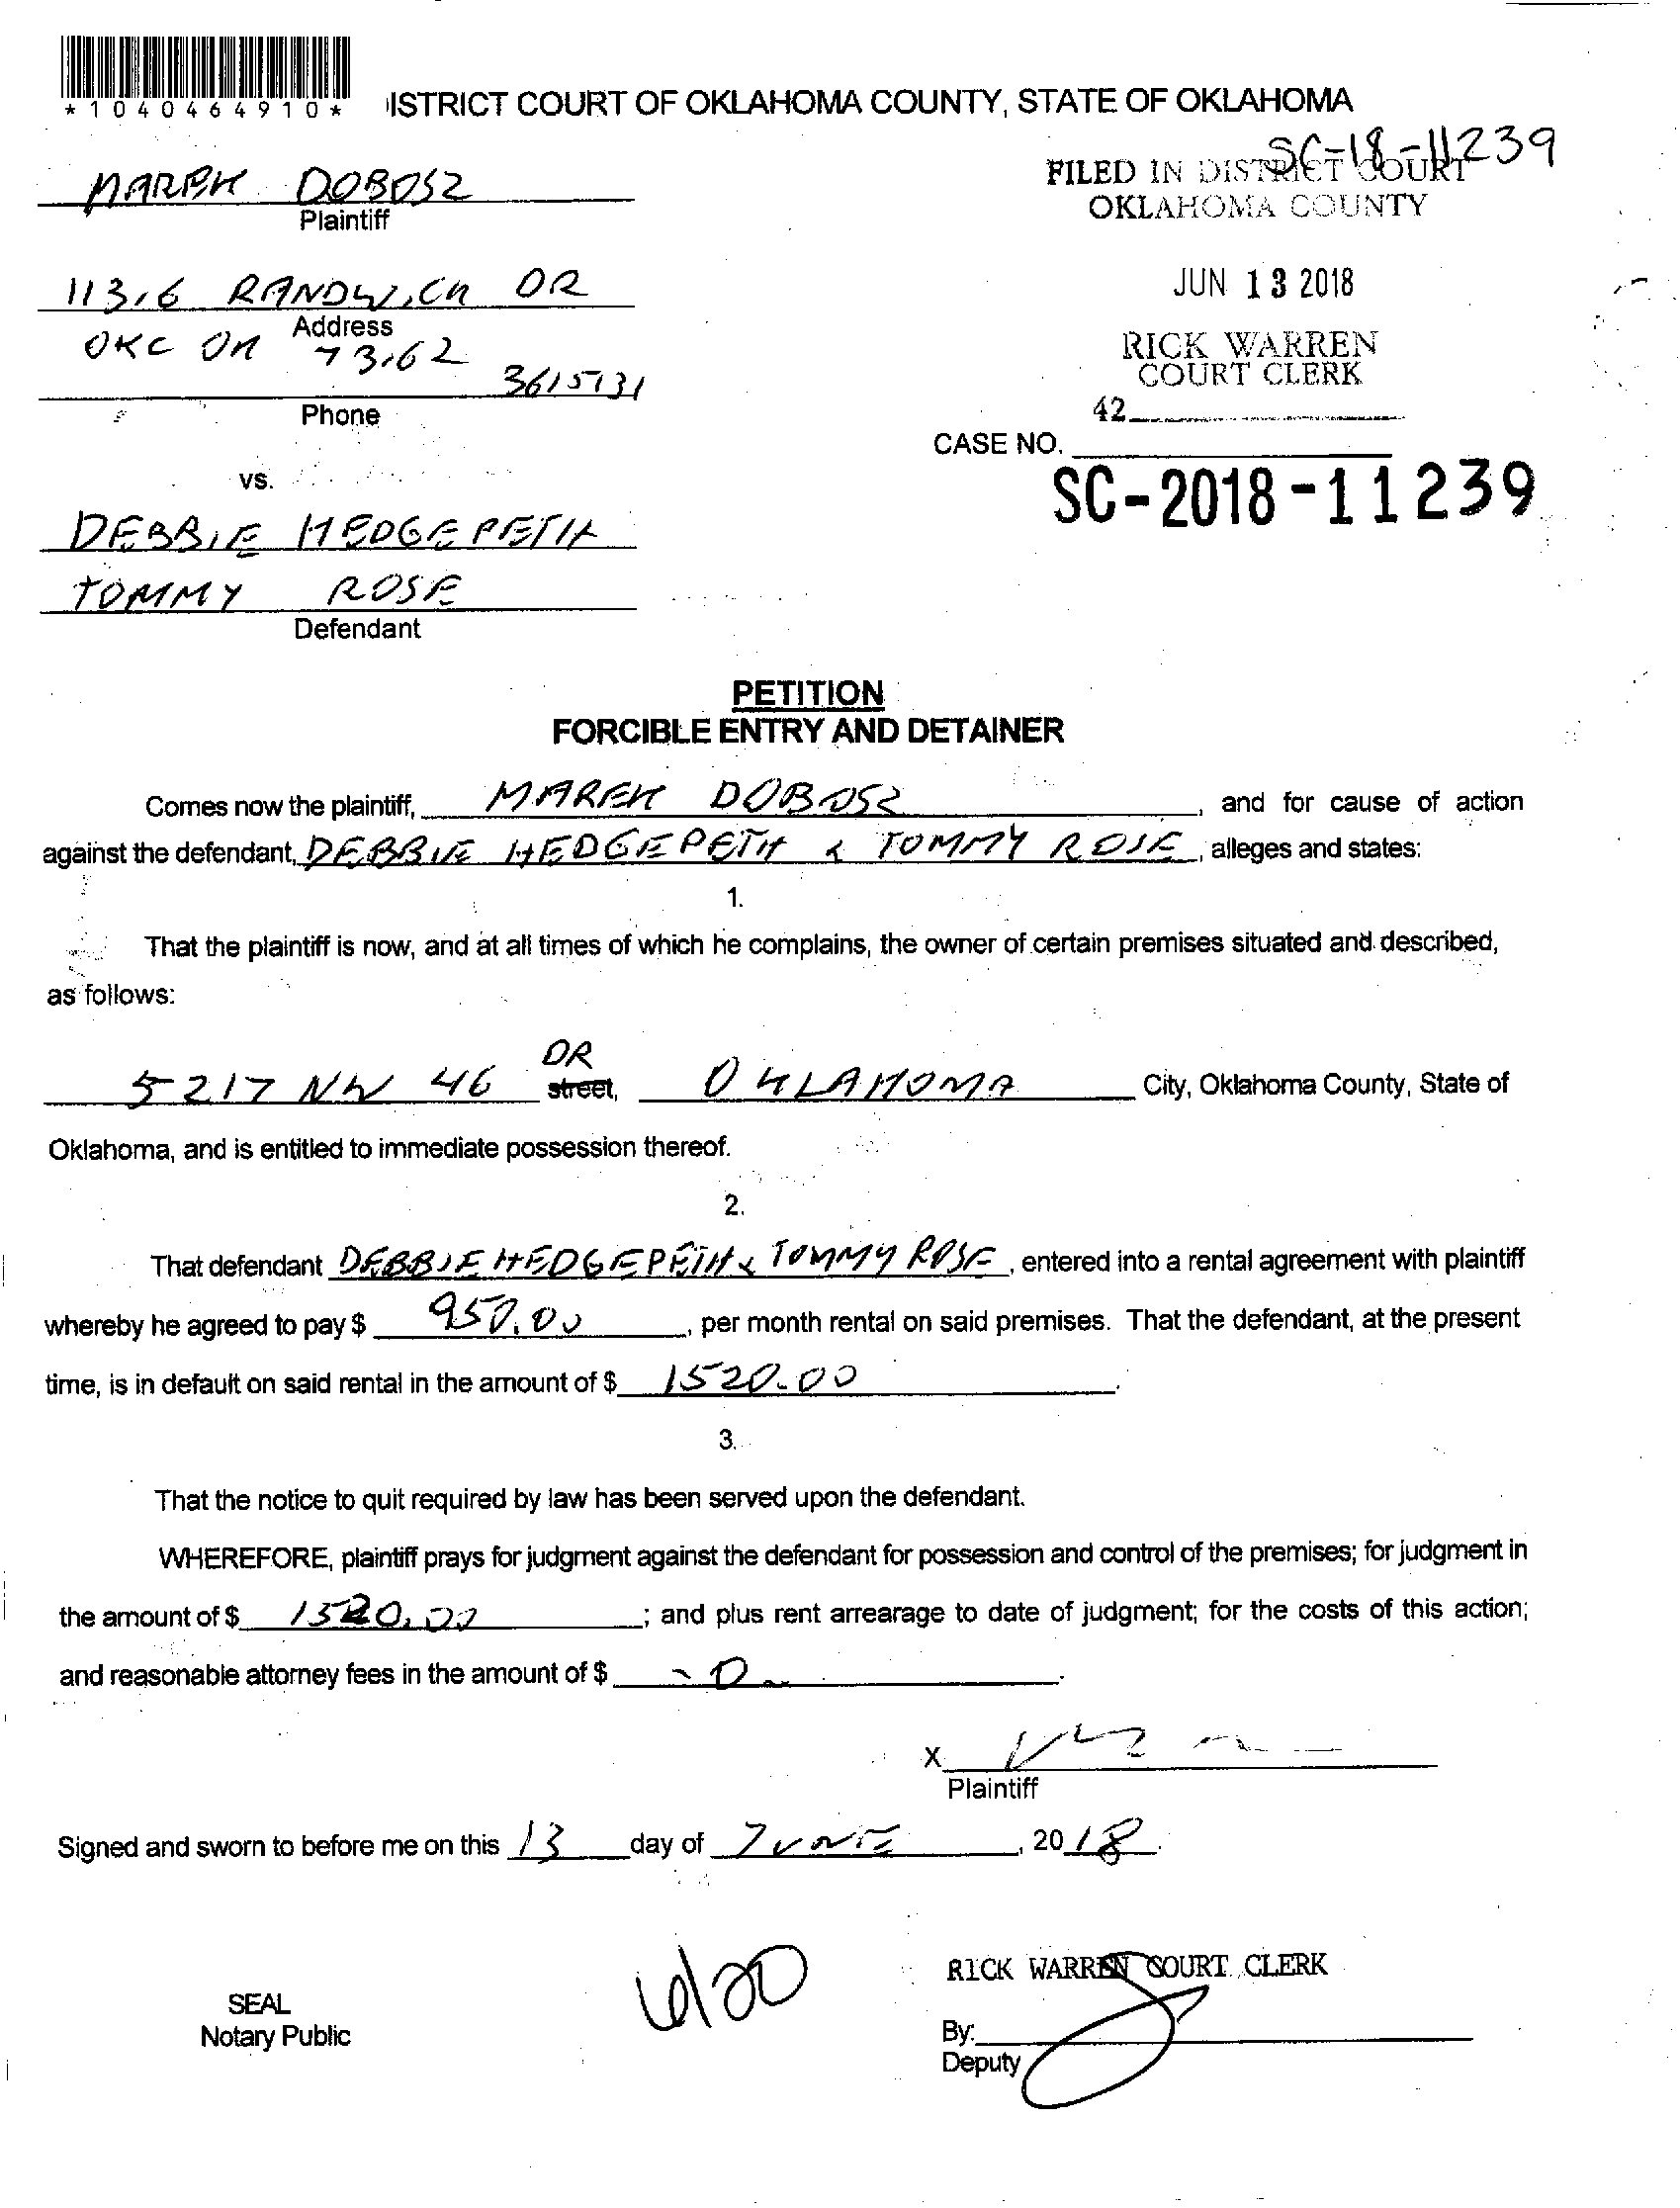 *1040464910*
ISTRICT COURT OF OKLAHOMA COUNTY, STATE OF OKLAHOMA
SC-18-11239
MAREK DOBOSZ
Plaintiff
FILED IN DISTRICT COURT
OKLAHOMA COUNTY
11316 RANDWICK DR
Address
JUN 13 2018
OKC OK 73162
RICK WARREN
COURT CLERK
3615131
Phone
42
CASE NO.
vs.
SC-2018-11239
DEBBIE HEDGEPETH
TOMMY ROSE
Defendant
PETITION
FORCIBLE ENTRY AND DETAINER
Comes now the plaintiff, MAREK DOBOSZ, and for cause of action
against the defendant, DEBBIE HEDGEPETH & TOMMY ROSE, alleges and states:
1.
That the plaintiff is now, and at all times of which he complains, the owner of certain premises situated and described,
as follows:
DR
5217 NW 46 street, OKLAHOMA City, Oklahoma County, State of
Oklahoma, and is entitled to immediate possession thereof.
2.
That defendant DEBBIE HEDGEPETH & TOMMY ROSE, entered into a rental agreement with plaintiff
whereby he agreed to pay $ 950.00, per month rental on said premises. That the defendant, at the present
time, is in default on said rental in the amount of $ 1520.00.
3.
That the notice to quit required by law has been served upon the defendant.
WHEREFORE, plaintiff prays for judgment against the defendant for possession and control of the premises; for judgment in
the amount of $ 1520.00; and plus rent arrearage to date of judgment; for the costs of this action;
and reasonable attorney fees in the amount of $ -0-.
X
Plaintiff
Signed and sworn to before me on this 13 day of JUNE, 2018.
6/20
RICK WARREN COURT CLERK
SEAL
Notary Public
By:
Deputy